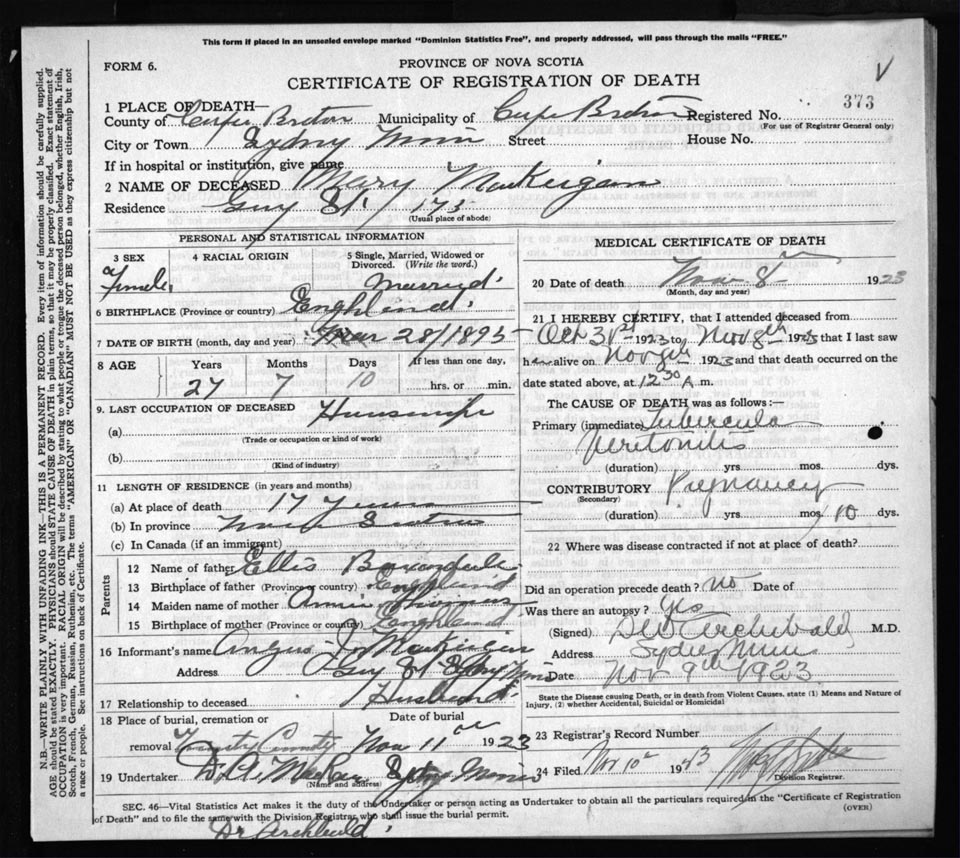 This form if placed in an unsealed envelope marked "Dominion Statistics Free", and properly addressed, will pass through the mails "FREE."
FORM 6.
PROVINCE OF NOVA SCOTIA
CERTIFICATE OF REGISTRATION OF DEATH
373
1 PLACE OF DEATH—
County of Cape Breton Municipality of Cape Breton Registered No.
(For use of Registrar General only)
City or Town Sydney Mines Street House No.
If in hospital or institution, give name
2 NAME OF DECEASED Mary MacKeigan
Residence Guy St / 175
(Usual place of abode)
PERSONAL AND STATISTICAL INFORMATION
3 SEX 4 RACIAL ORIGIN 5 Single, Married, Widowed or Divorced. (Write the word.)
Female Married
6 BIRTHPLACE (Province or country) Enghland
7 DATE OF BIRTH (month, day and year) Mar 28/1895
8 AGE Years Months Days If less than one day,
27 7 10 hrs. or min.
9. LAST OCCUPATION OF DECEASED Housewife
(a)
(Trade or occupation or kind of work)
(b)
(Kind of industry)
11 LENGTH OF RESIDENCE (in years and months)
(a) At place of death 17 Years
(b) In province Nova Scotia
(c) In Canada (if an immigrant)
Parents
12 Name of father Ellis
13 Birthplace of father (Province or country) Enghland
14 Maiden name of mother Annie
15 Birthplace of mother (Province or country) Enghland
16 Informant's name Angus J MacKeigan
Address Guy St Sydney Mines
17 Relationship to deceased Husband
18 Place of burial, cremation or removal Date of burial
Trinity Nov 11th 1923
19 Undertaker D. A. MacRae Sydney Mines
(Name and address)
MEDICAL CERTIFICATE OF DEATH
20 Date of death Nov 8th 1923
(Month, day and year)
21 I HEREBY CERTIFY, that I attended deceased from
Oct 31st 1923 to Nov 8th 1923 that I last saw
her alive on Nov 8th 1923 and that death occurred on the
date stated above, at 12 30 A. m.
The CAUSE OF DEATH was as follows:—
Primary (immediate) Tubercula
Peritonitis
(duration) yrs. mos. dys.
CONTRIBUTORY Pregnancy
(Secondary)
(duration) yrs. mos. 10 dys.
22 Where was disease contracted if not at place of death?
Did an operation precede death? no Date of
Was there an autopsy? yes
(Signed) Archibald M.D.
Address Sydney Mines
Date Nov 9th 1923
State the Disease causing Death, or in death from Violent Causes, state (1) Means and Nature of Injury, (2) whether Accidental, Suicidal or Homicidal
23 Registrar's Record Number
24 Filed Nov 10th 1923
Division Registrar.
SEC. 46—Vital Statistics Act makes it the duty of the Undertaker or person acting as Undertaker to obtain all the particulars required in the "Certificate of Registration
of Death" and to file the same with the Division Registrar who shall issue the burial permit.
(OVER)
Dr Archbald
N.B.—WRITE PLAINLY WITH UNFADING INK—THIS IS A PERMANENT RECORD. Every item of information should be carefully supplied.
AGE should be stated EXACTLY. PHYSICIANS should STATE CAUSE OF DEATH in plain terms, so that it may be properly classified. Exact statement of
OCCUPATION is very important. RACIAL ORIGIN will be described by stating to what people or tongue the deceased person belonged, whether English, Irish,
Scotch, French, German, Russian, Ruthenian, etc. The terms "AMERICAN" OR "CANADIAN" MUST NOT BE USED as they express citizenship but not
a race or people. See instructions on back of Certificate.